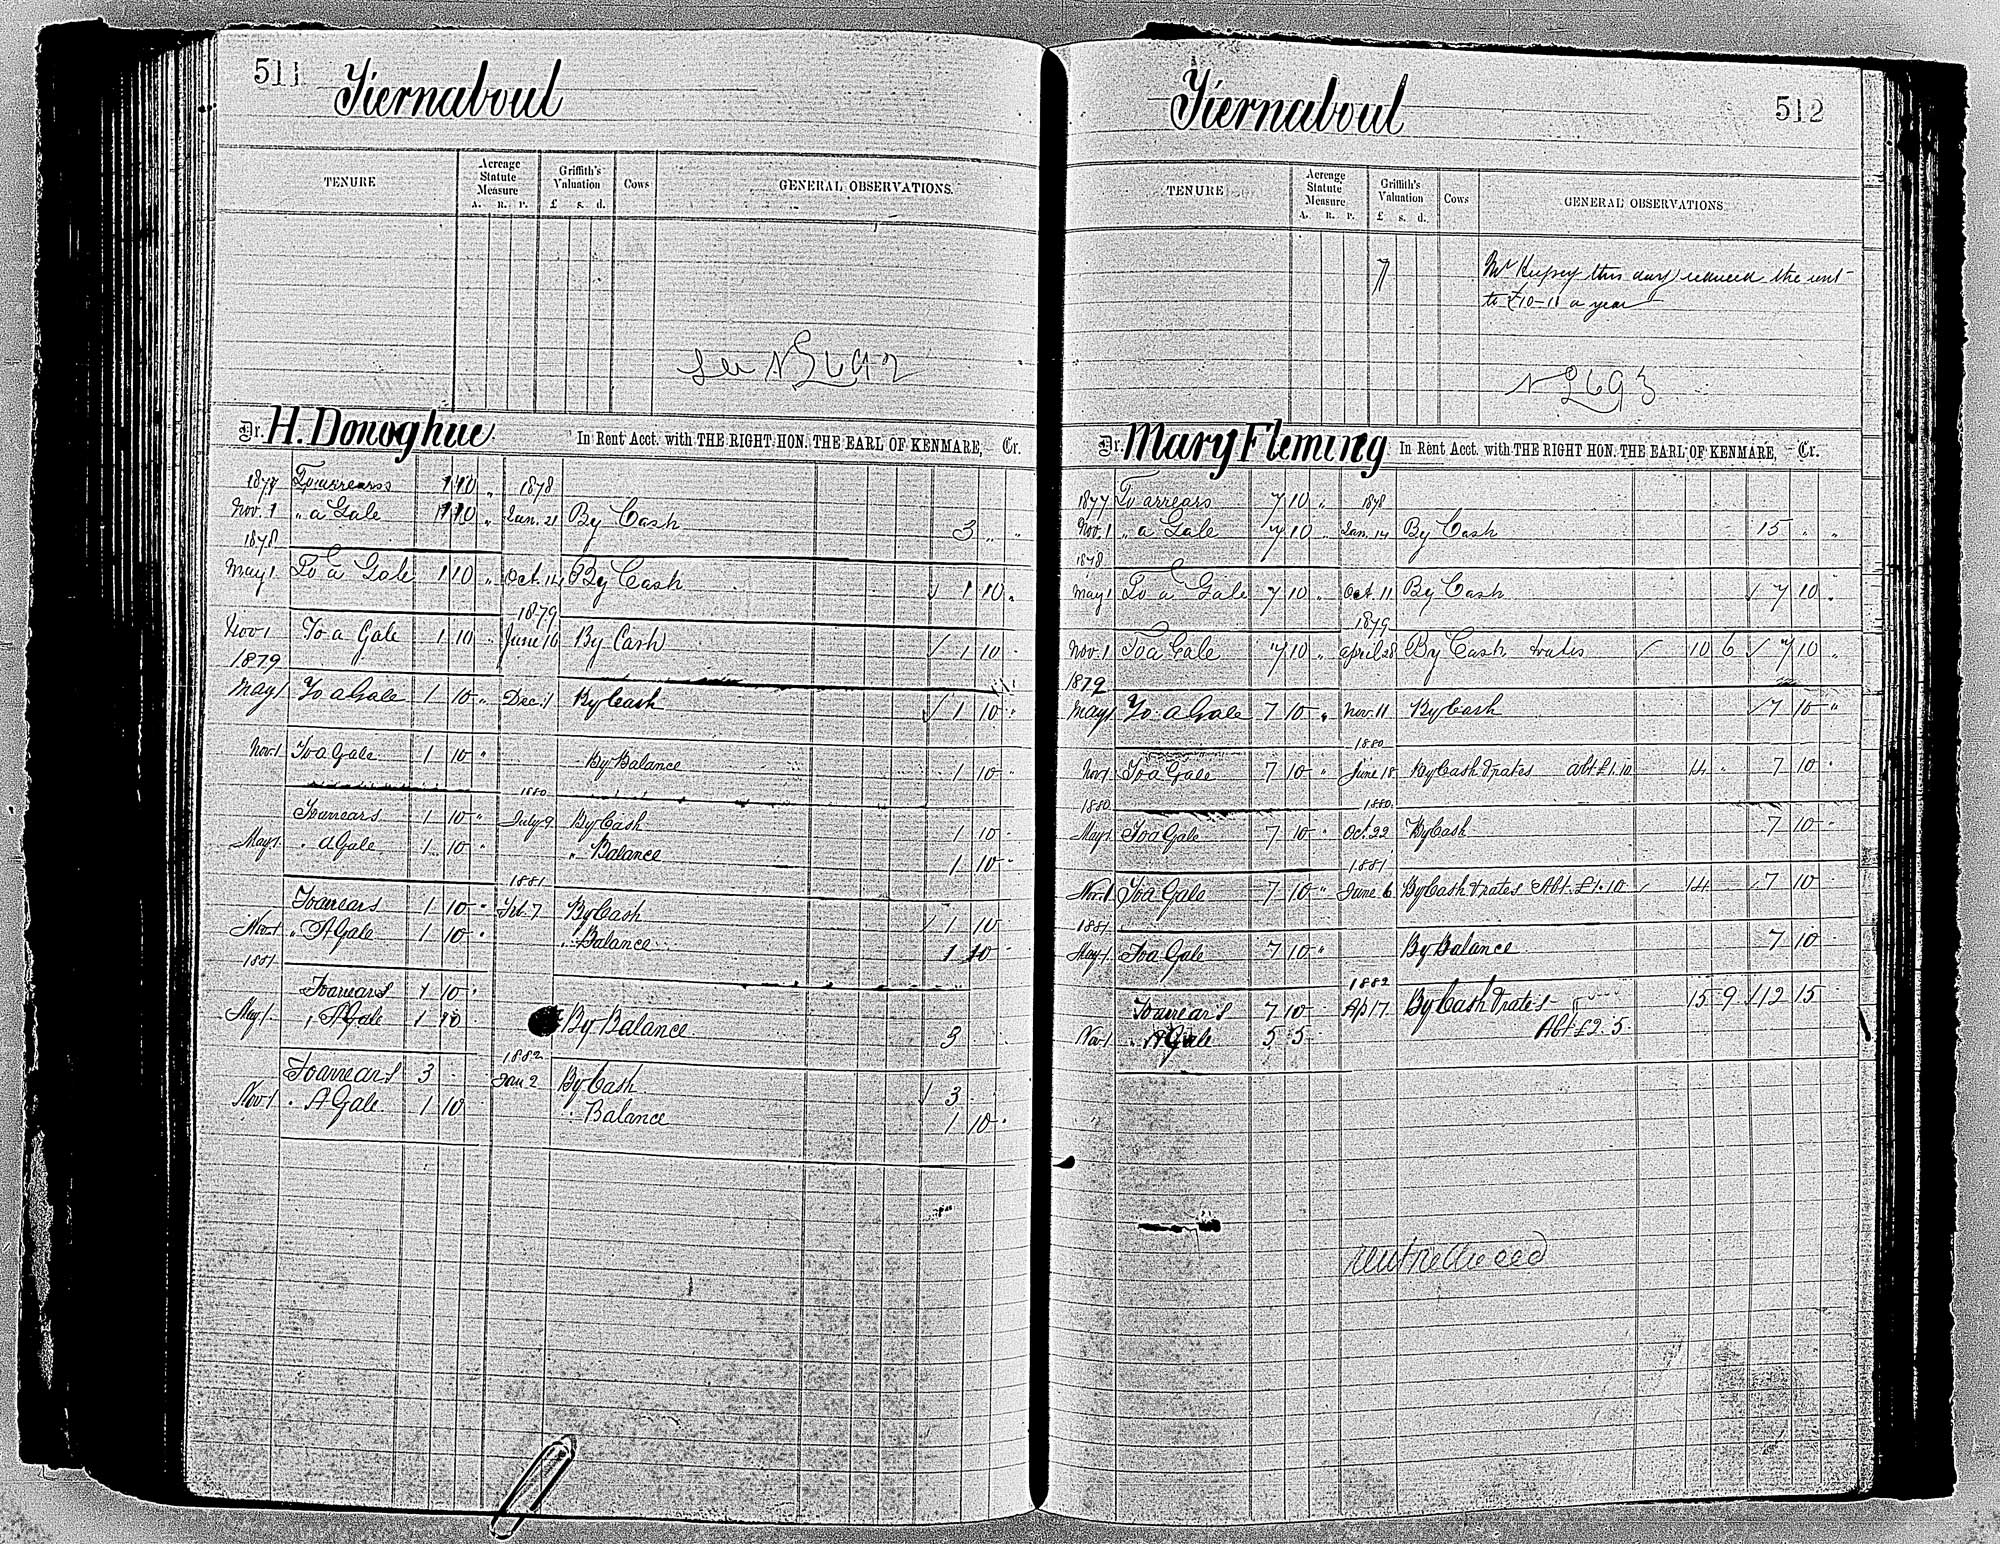 511
Tiernaboul
TENURE
Acreage Statute Measure
A. R. P.
Griffith's Valuation
£ s. d.
Cows
GENERAL OBSERVATIONS.
See N 2692
Dr. H. Donoghue In Rent Acct. with THE RIGHT HON. THE EARL OF KENMARE, Cr.
1877 To arrears 1 10 " 1878
Nov. 1 " a Gale 1 10 " Jan. 21 By Cash 3 " "
1878
May 1 To a Gale 1 10 " Oct. 14 By Cash √ 1 10 "
1879
Nov 1 To a Gale 1 10 " June 16 By Cash √ 1 10 "
1879
May 1 To a Gale 1 10 " Dec. 1 By Cash √ 1 10 "
Nov. 1 To a Gale 1 10 " By Balance 1 10 "
1880
To arrears 1 10 " July 9 By Cash 1 10 "
May 1 " a Gale 1 10 " " Balance 1 10 "
1881
To arrears 1 10 " Feb. 7 By Cash √ 1 10
Nov. 1 " A Gale 1 10 " " Balance 1 10 "
1881
To arrears 1 10 "
May 1 " A Gale 1 10 By Balance 3
1882
To arrears 3 Jan 2 By Cash √ 3
Nov 1 " A Gale 1 10 " Balance 1 10 "
Tiernaboul
512
TENURE
Acreage Statute Measure
A. R. P.
Griffith's Valuation
£ s. d.
Cows
GENERAL OBSERVATIONS
7 Mr Hussey this day reduced the rent
to £10-10 a year
N 2693
Dr. Mary Fleming In Rent Acct. with THE RIGHT HON. THE EARL OF KENMARE, Cr.
1877 To arrears 7 10 " 1878
Nov. 1 " a Gale 7 10 " Jan. 14 By Cash 15 " "
1878
May 1 To a Gale 7 10 " Oct. 11 By Cash √ 7 10 "
1879
Nov. 1 To a Gale 7 10 " April 28 By Cash & rates √ 10 6 √ 7 10 "
1879
May 1 To a Gale 7 10 " Nov. 11 By Cash √ 7 10 "
1880
Nov 1 To a Gale 7 10 " June 18 By Cash & rates Abt £1.10 14 " 7 10 "
1880 1880
May 1 To a Gale 7 10 " Oct. 22 By Cash 7 10 "
1881
Nov. 1 To a Gale 7 10 " June 6 By Cash & rates Abt. £1.10 √ 14 √ 7 10
1881
May 1 To a Gale 7 10 " By Balance 7 10
1882
To arrears 7 10 Ap 17 By Cash & rates 15 9 √ 12 15
Nov 1 " A Gale 5 5 Abt £2.5
rent reduced